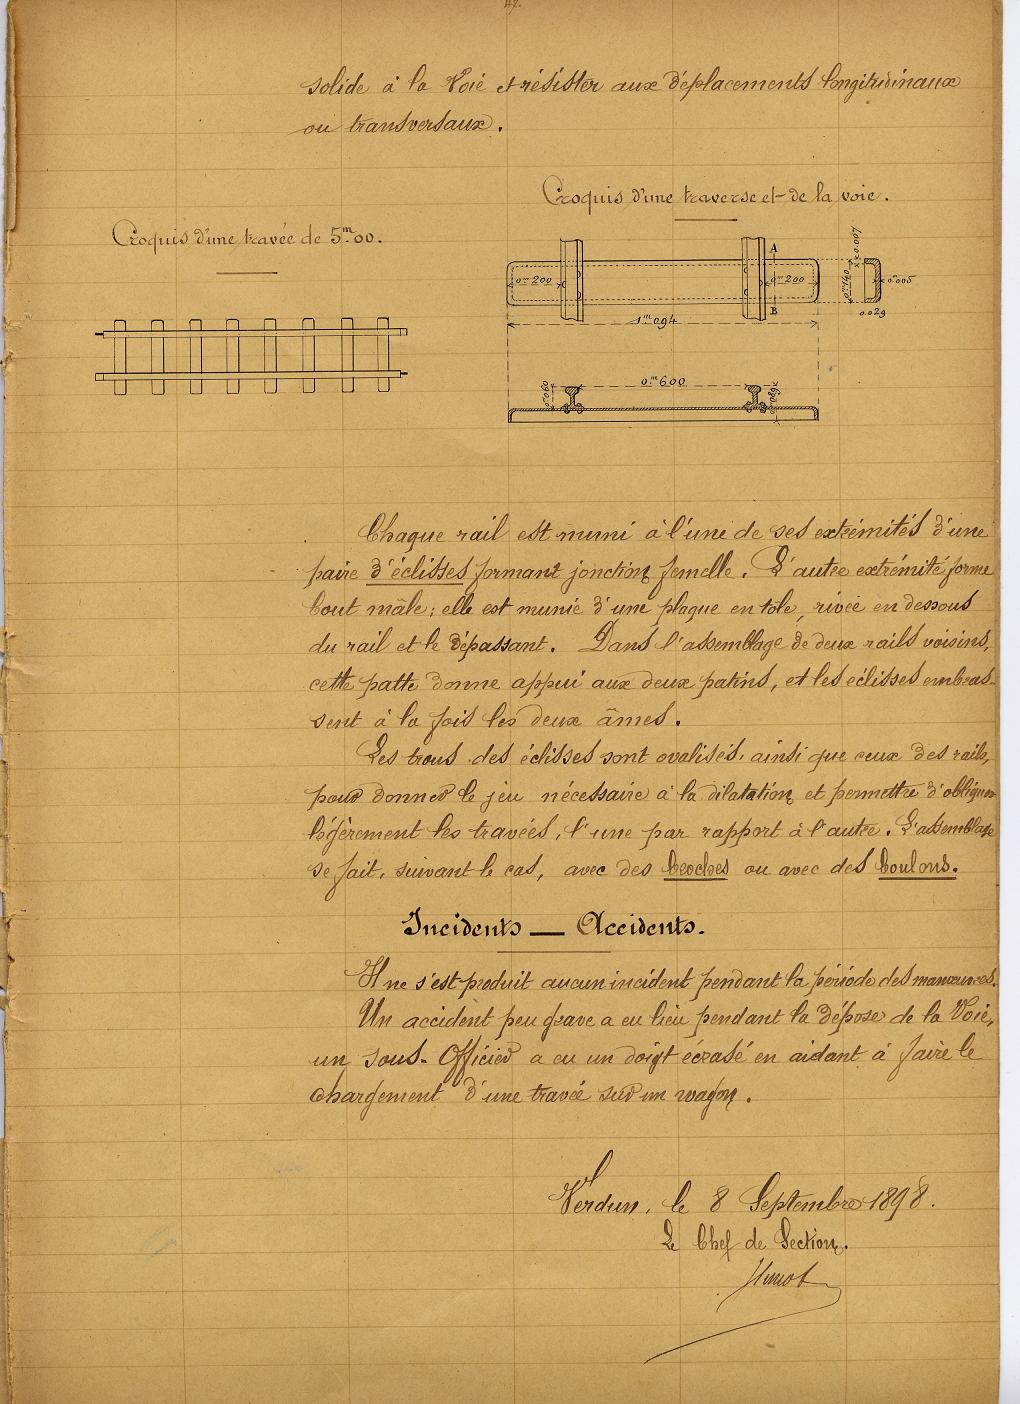 47.
solide à la Voie et résister aux déplacements longitudinaux
ou transversaux.
Croquis d'une traverse et de la voie.
Croquis d'une travée de 5m00.
A
0m200
0m200
B
1m094
0m140
0.007
0m005
0.029
0m060
0m600
0m089
Chaque rail est muni à l'une de ses extrémités d'une
paire d'éclisses formant jonction femelle. L'autre extrémité forme
bout mâle; elle est munie d'une plaque en tôle, rivée en dessous
du rail et le dépassant. Dans l'assemblage de deux rails voisins,
cette patte donne appui aux deux patins, et les éclisses embras-
sent à la fois les deux âmes.
Les trous des éclisses sont ovalisés, ainsi que ceux des rails,
pour donner le jeu nécessaire à la dilatation et permettre d'obliquer
légèrement les travées, l'une par rapport à l'autre. L'assemblage
se fait, suivant le cas, avec des broches ou avec des boulons.
Incidents — Accidents.
Il ne s'est produit aucun incident pendant la période des manœuvres.
Un accident peu grave a eu lieu pendant la dépose de la Voie,
un sous-Officier a eu un doigt écrasé en aidant à faire le
chargement d'une travée sur un wagon.
Verdun, le 8 Septembre 1898.
Le Chef de Section.